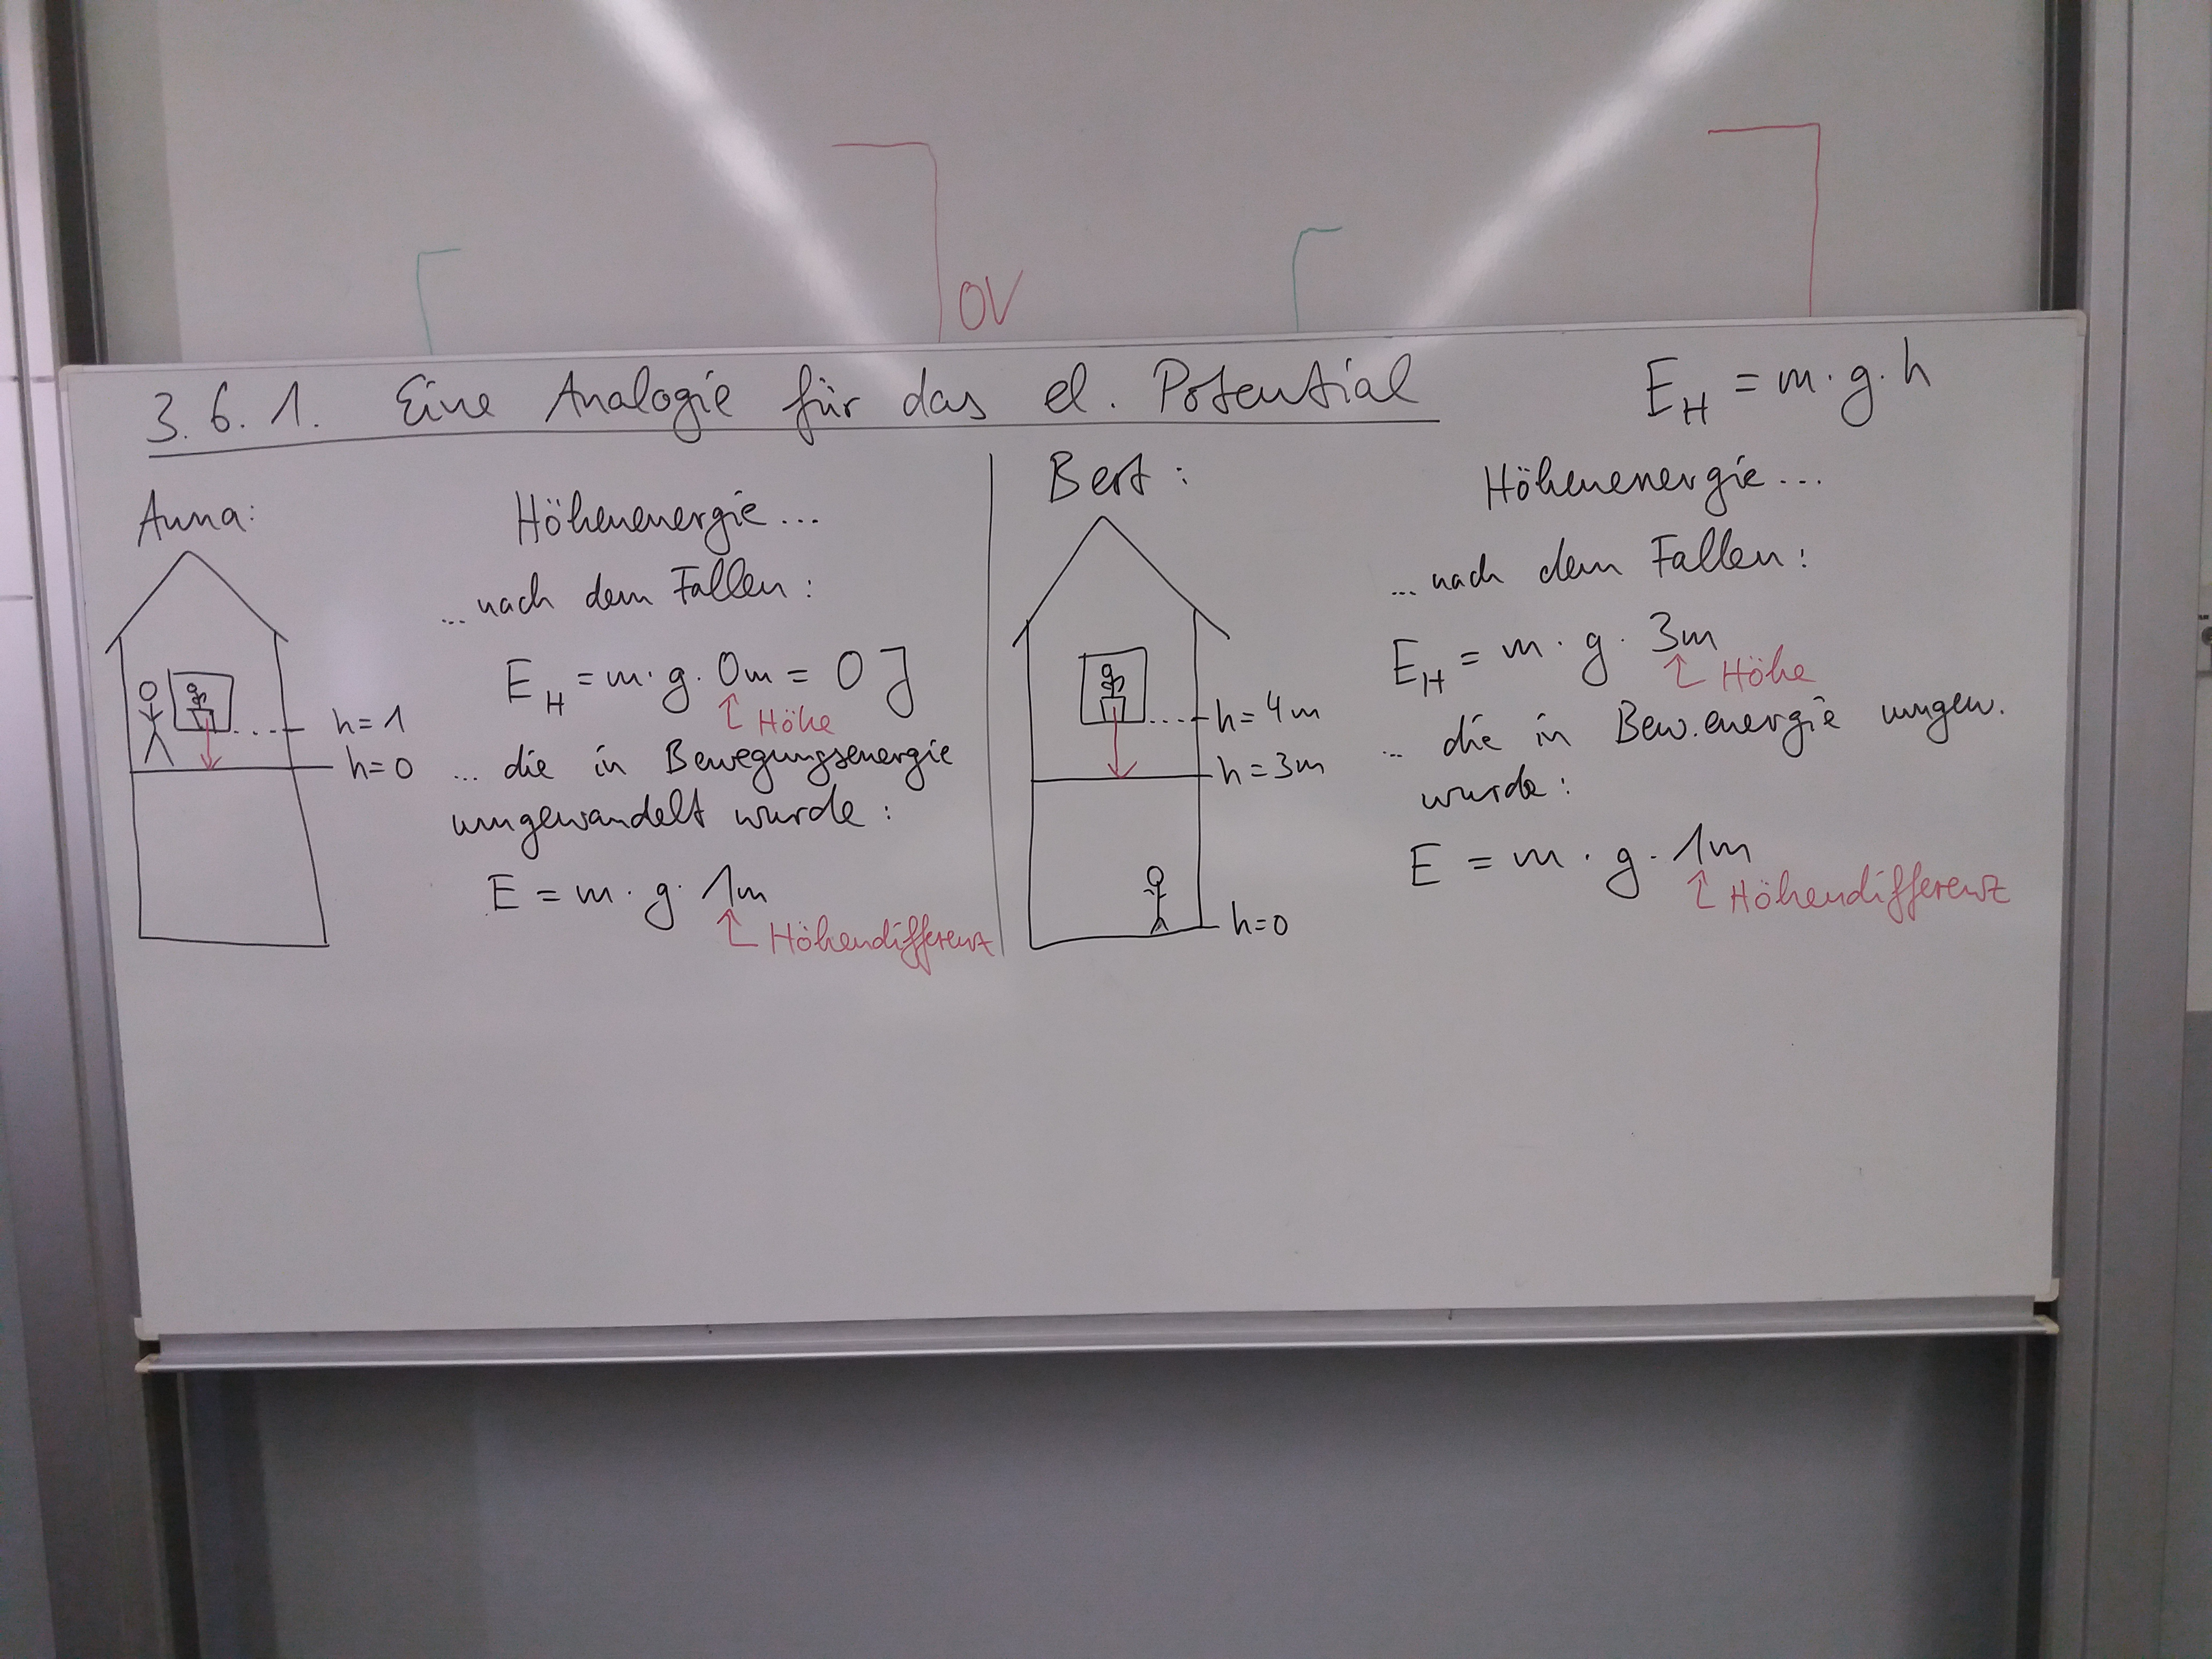 0V
3.6.1. Eine Analogie für das el. Potential
E_H = m·g·h
Anna:
Höhenenergie...
...nach dem Fallen:
E_H = m·g·0m = 0 J
Höhe
h=1
h=0
... die in Bewegungsenergie
umgewandelt wurde:
E = m·g·1m
Höhendifferenz
Bert:
Höhenenergie...
...nach dem Fallen:
E_H = m·g·3m
Höhe
h=4m
h=3m
... die in Bew.energie umgew.
wurde:
E = m·g·1m
Höhendifferenz
h=0